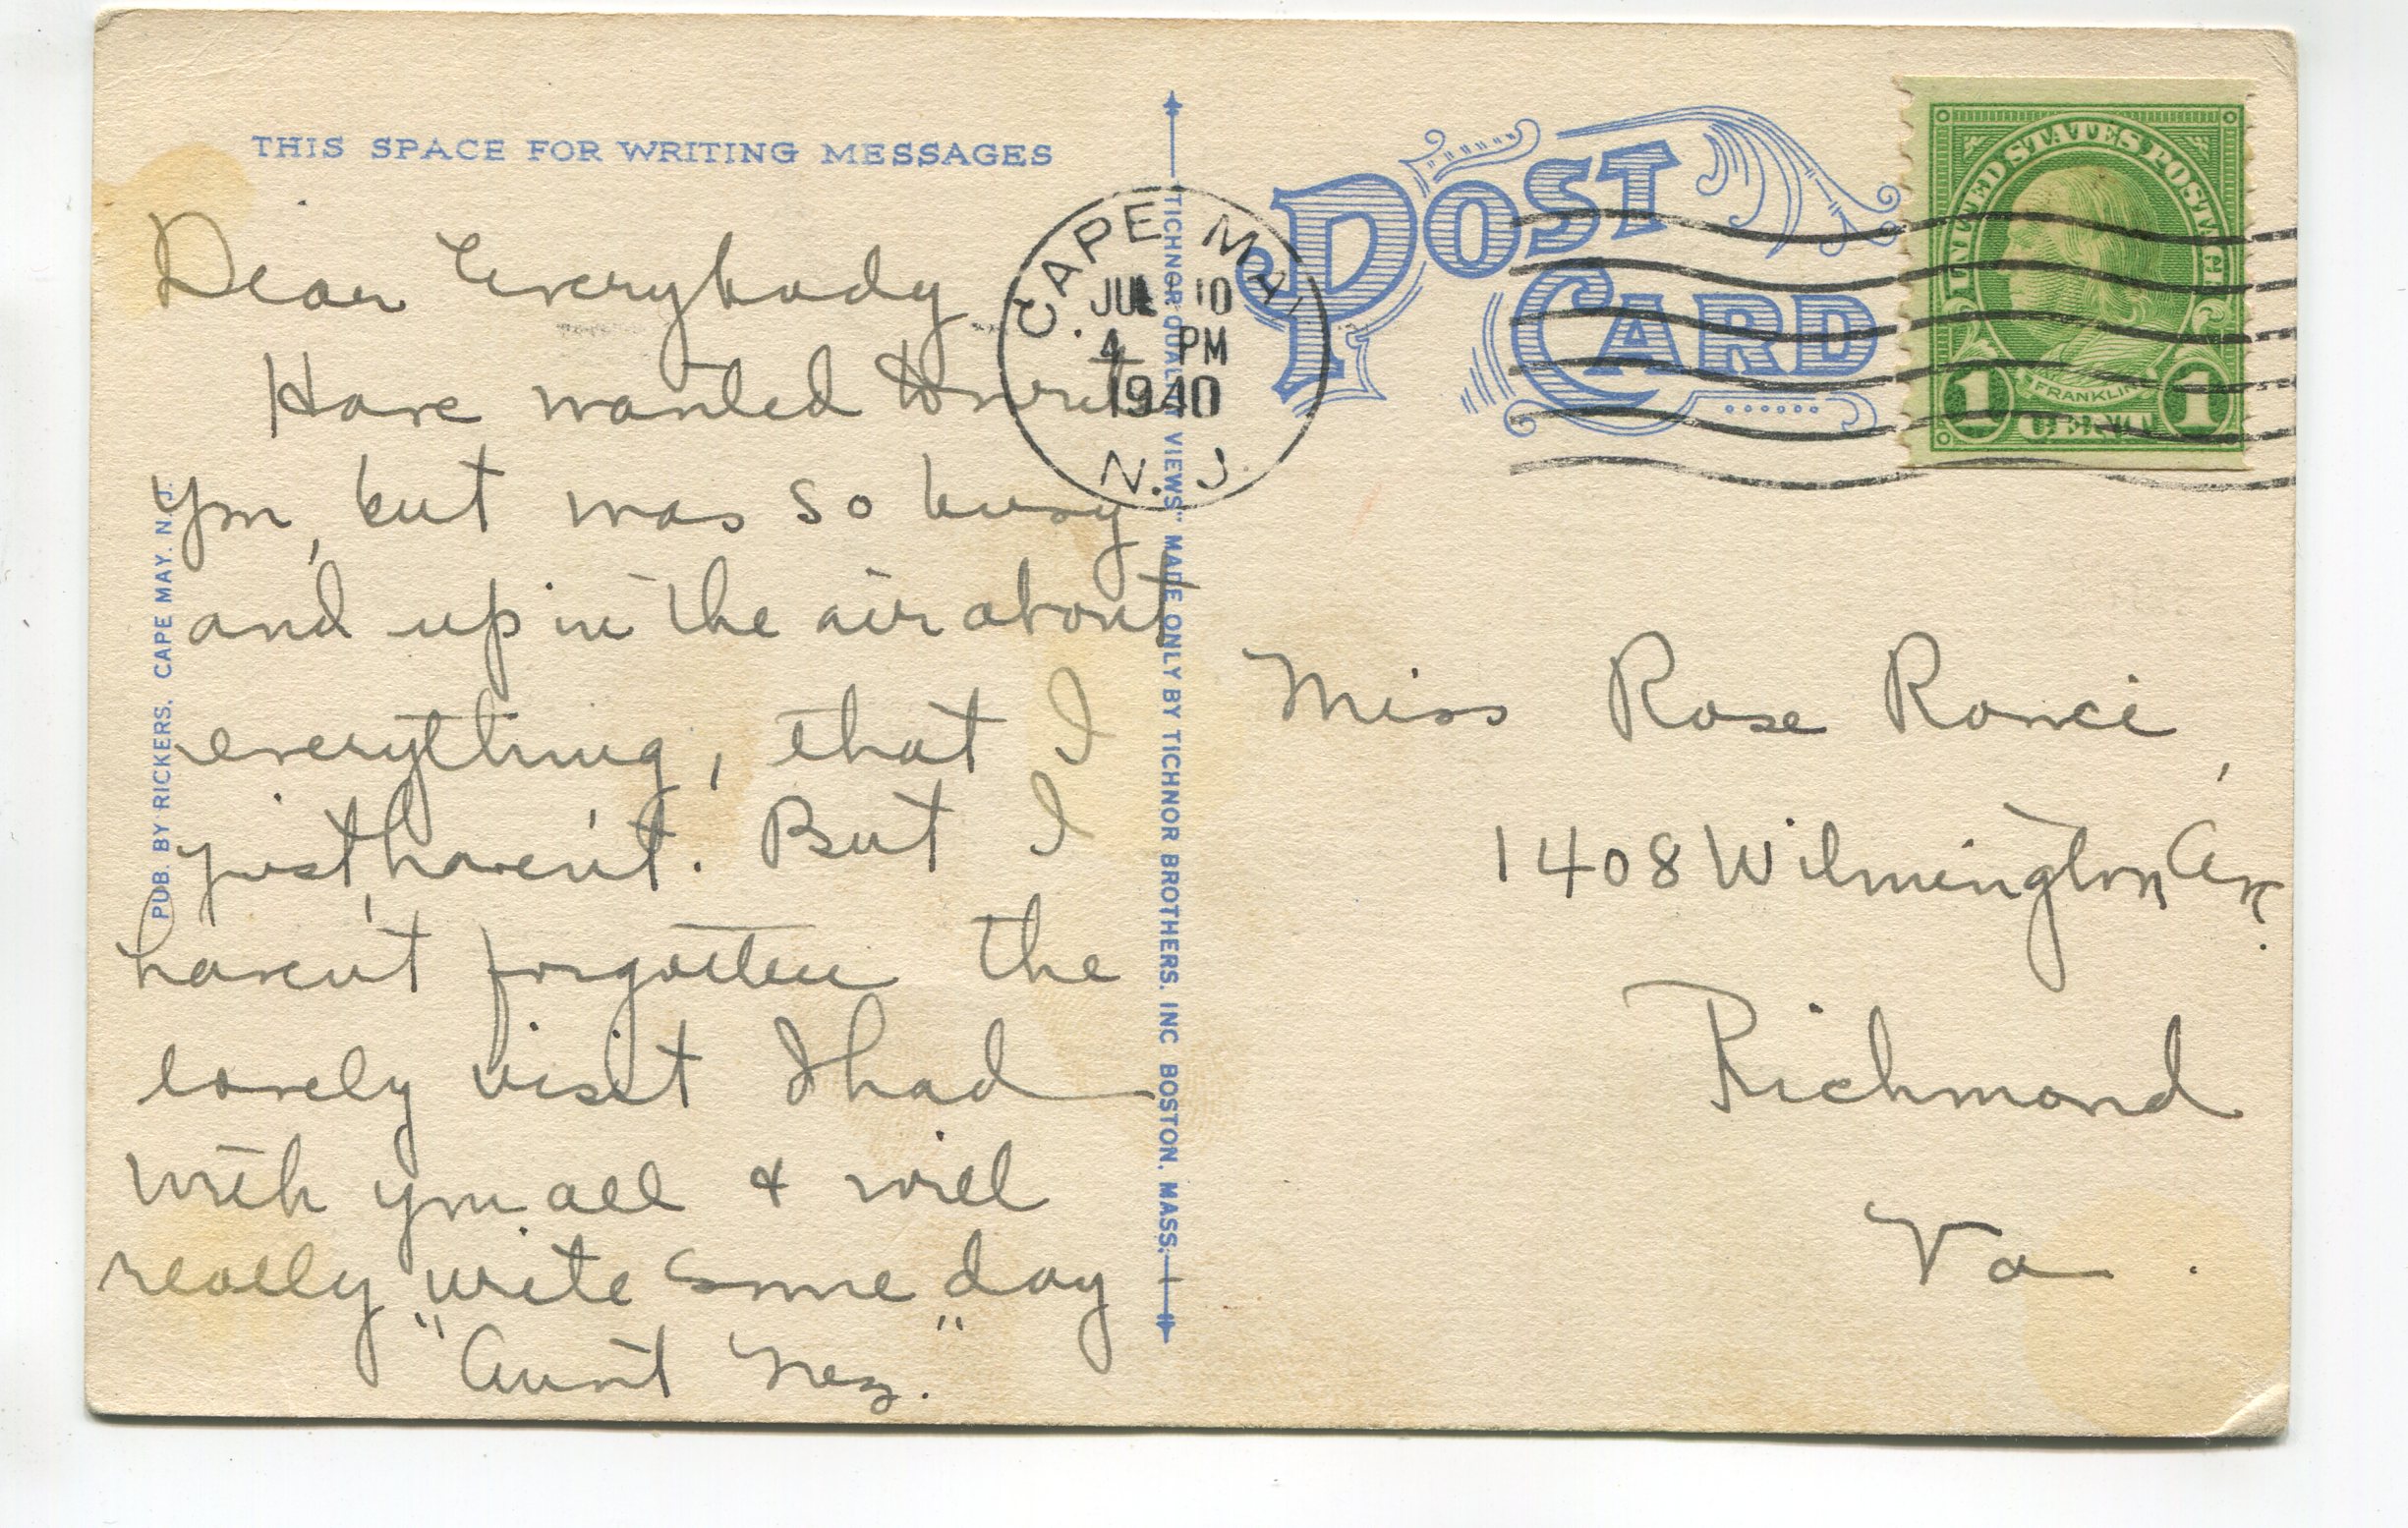 THIS SPACE FOR WRITING MESSAGES
Dear Everybody
Have wanted to write
you, but was so busy
and up in the air about
everything, that I
just, haven't. But I
haven't forgotten the
lovely visit I had
with you all & will
really write some day
"Aunt Nez."
PUB. BY RICKERS. CAPE MAY. N. J.
TICHNOR QUALITY VIEWS" MADE ONLY BY TICHNOR BROTHERS. INC BOSTON. MASS.
CAPE MAY
JUL 10
4 PM
1940
N. J.
POST
CARD
UNITED STATES POSTAGE
FRANKLIN
1 CENT 1
Miss Rose Ronci,
1408 Wilmington Av.
Richmond
Va.